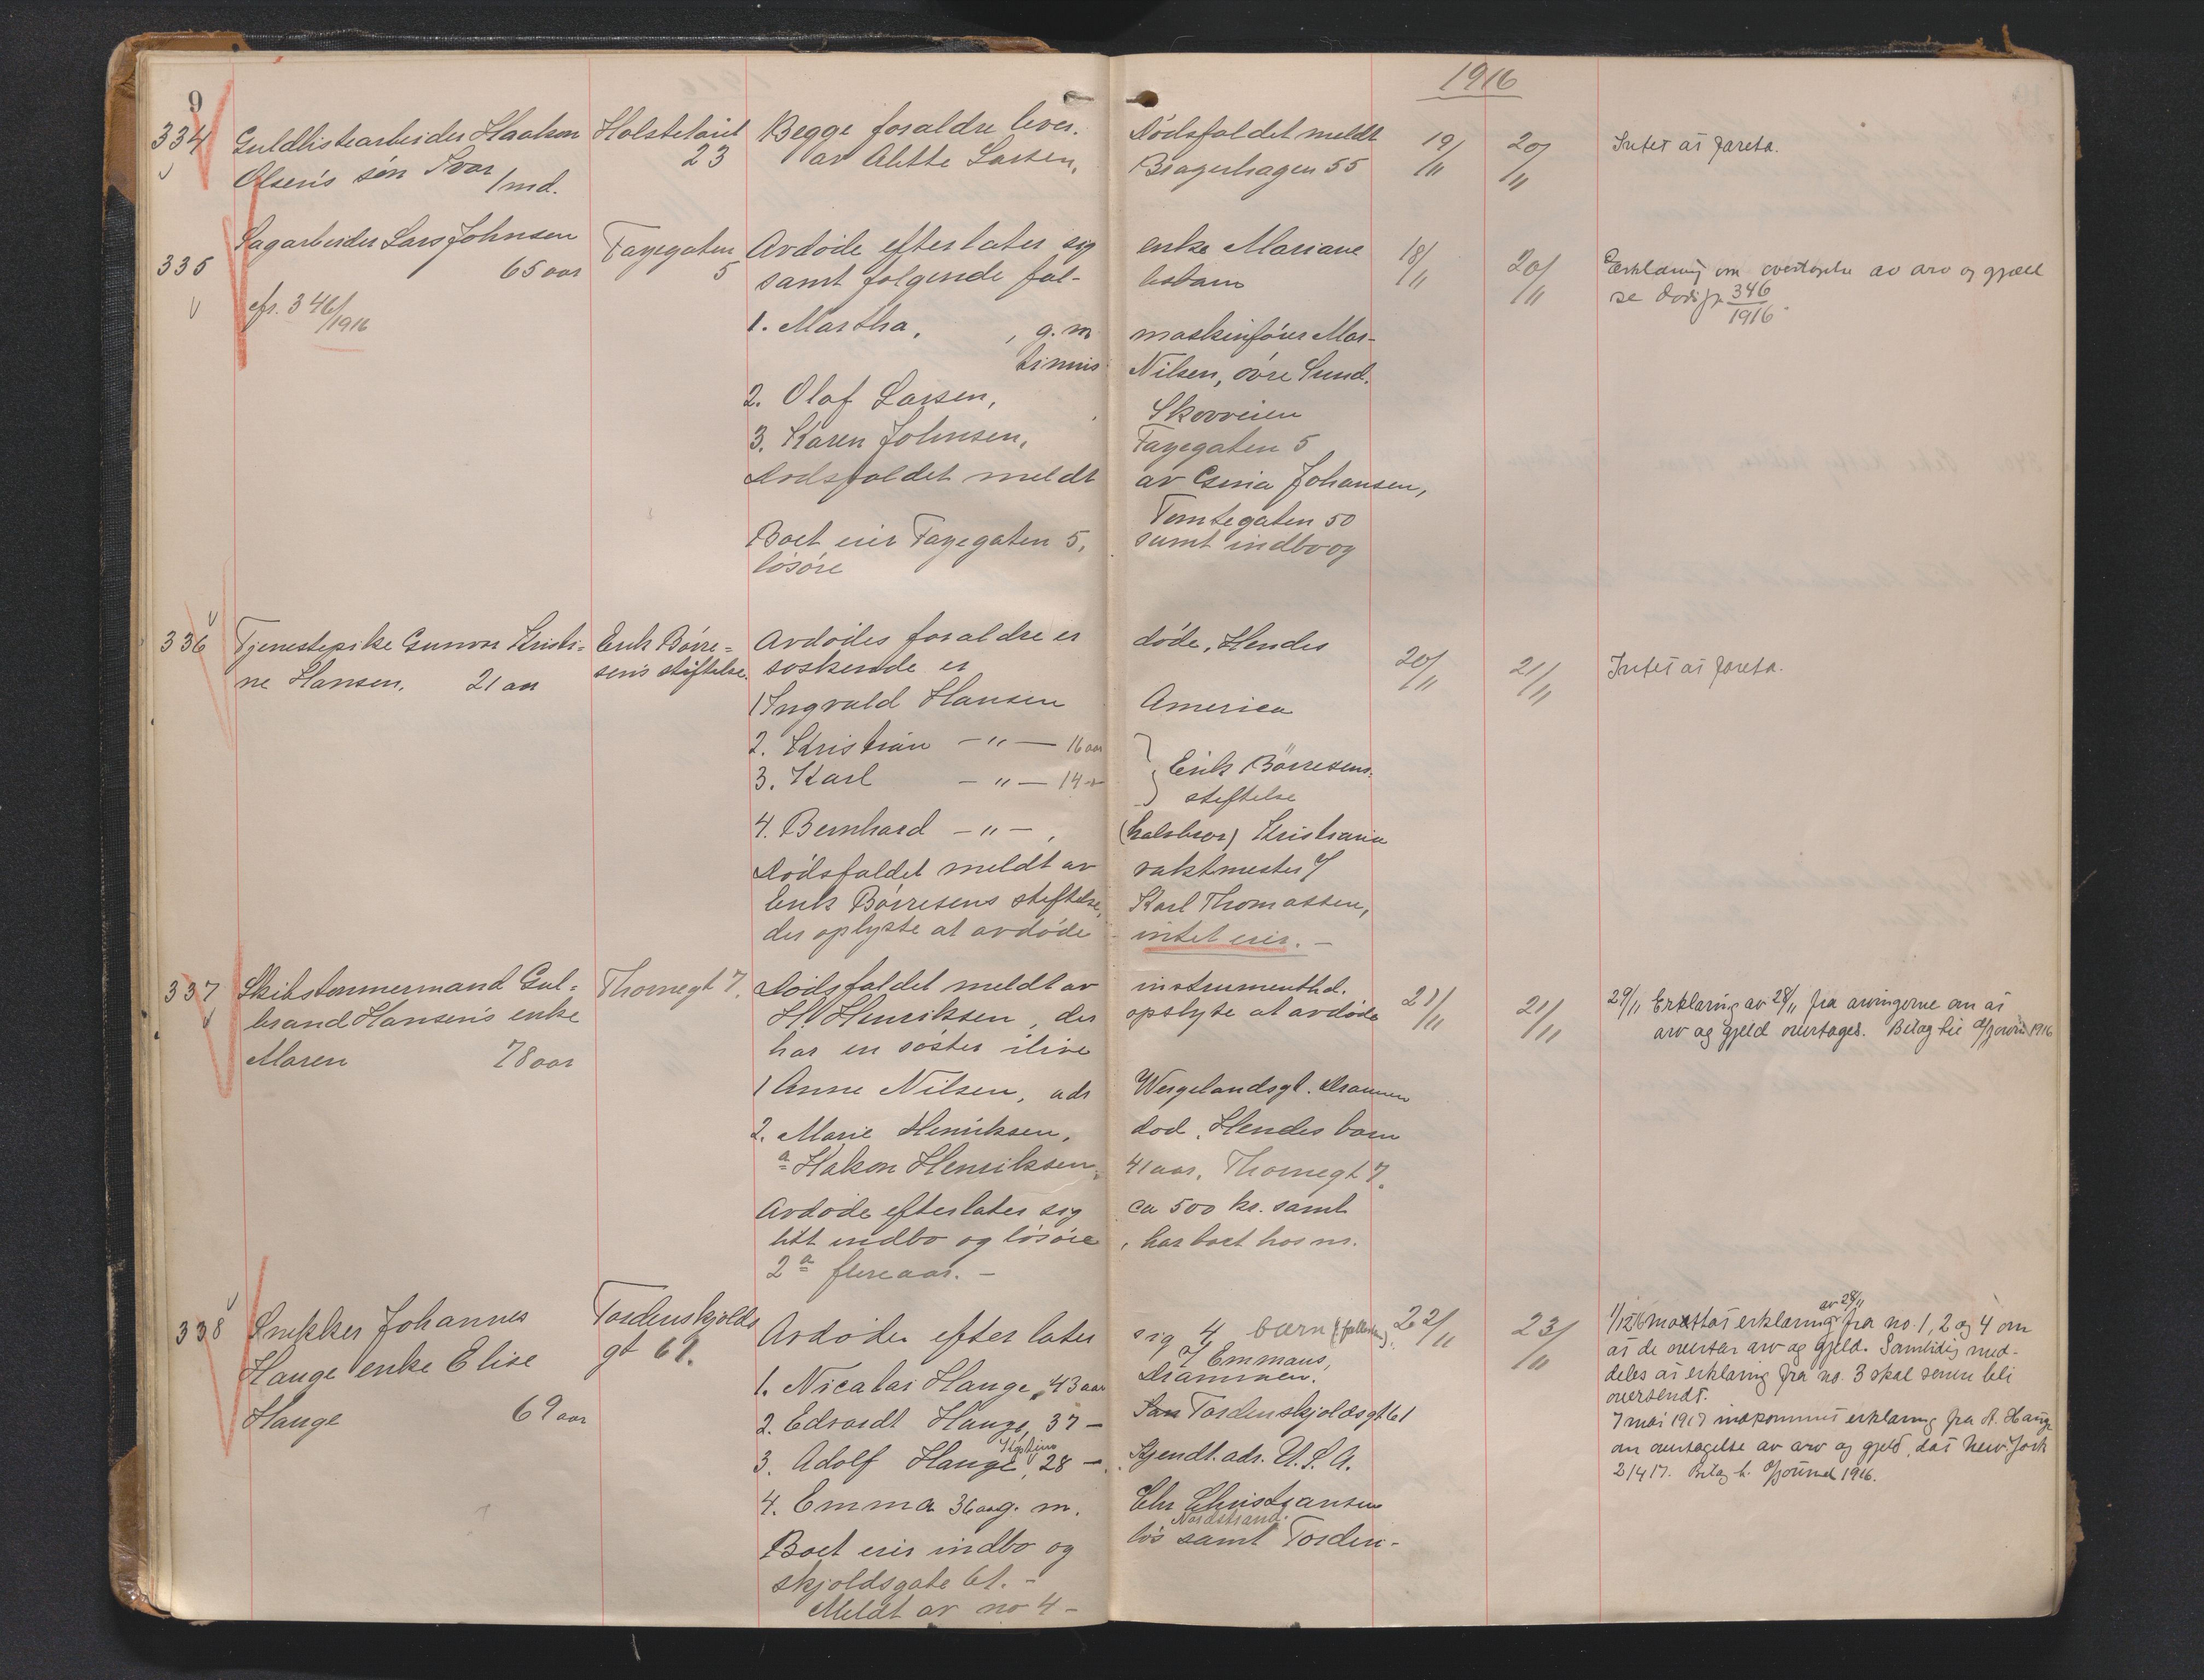 1916
9
334 Guldlistearbeider Haakon Holsteinst Begge foraldre lever. Dödsfaldet meldt 19/11 20/11 Intet at foreta.
Olsens sön Ivar 1 md. 23 av Alette Larsen, Bragerhagen 55
335 Sagarbeider Lars Johnsen Fayegaten Avdöde efterlater sig enke Mariane 18/11 20/11 Erklæring om overtagelse av arv og gjæld
65 aar 5 samt følgende fæl- lesbarn se dødsfp 346/1916.
cfr. 346/1916
1. Martha, , g. m. maskinförer Mar-
tinius Nilsen, övre Sund.
2. Olaf Larsen, Skovveien
3. Karen Johnsen, Fayegaten 5
Dodsfaldet meldt av Esina Johansen,
Tomtegaten 50
Boet eier Fayegaten 5, samt indbo og
lösöre
336 Tjenestepike Gunvor Kristi- Erik Börre- Avdödes foraldre er döde. Hendes 20/11 21/11 Intet at foreta.
ne Hansen. 21 aar sens stiftelse. söskende er
1 Ingvald Hansen America
2. Kristian — " — 16 aar
3. Karl — " — 14 — Erik Börresens
stiftelse
4. Bernhard — " — , (halvbror) Kristiania
Dödsfaldet meldt av vaktmester v/
Erik Börresens stiftelse, Karl Thomassen,
der oplyste at avdöde intet eier. —
337 Skibstømmermand Gul- Thornegt 7. Dödsfaldet meldt av instrumenthd. 21/11 21/11 29/11 Erklæring av 28/11 fra arvingerne om at
brand Hansens enke H. Henriksen, der oplyste at avdöde arv og gjeld overtages. Bilag til 1916
Maren 78 aar har en söster ilive
1 Anne Nilsen, adr Wergelandsgt. Drammen
2. Marie Henriksen, död. Hendes barn
a Hakon Henriksen, 41 aar. Thornegt 7.
Avdöde efterlater sig ca 500 kr. samt
litt indbo og lösöre , har boet hos nr.
2 a flere aar. —
338 Snekker Johannes Tordenskjolds Avdöde efterlater sig 4 barn 22/11 23/11 1/12 16 mottat erklæring av 28/11 fra no. 1, 2 og 4 om
Hauge enke Elise gt 61. at de overtar arv og gjeld. Samtidig med-
Hauge 69 aar 1. Nicolai Hauge, 43 aar Emmaus, Drammen. deles at erklæring fra no. 3 skal senere bli
oversendt.
2. Edvardt Hauge, 37 — Tordenskjoldsgt 61 7 mai 1917 indkommet erklæring fra A. Hauge
3. Adolf Hauge, 28 — Kjendt. adr. U.S.A. om overtagelse av arv og gjeld, dat New York
2/4 17. Bilag t. 1916.
4. Emma 36 aar g. m. Chr Christiansen
Nordstrand.
Boet eier indbo og lös samt Torden-
skjoldsgate 61. —
Meldt av no 4 —